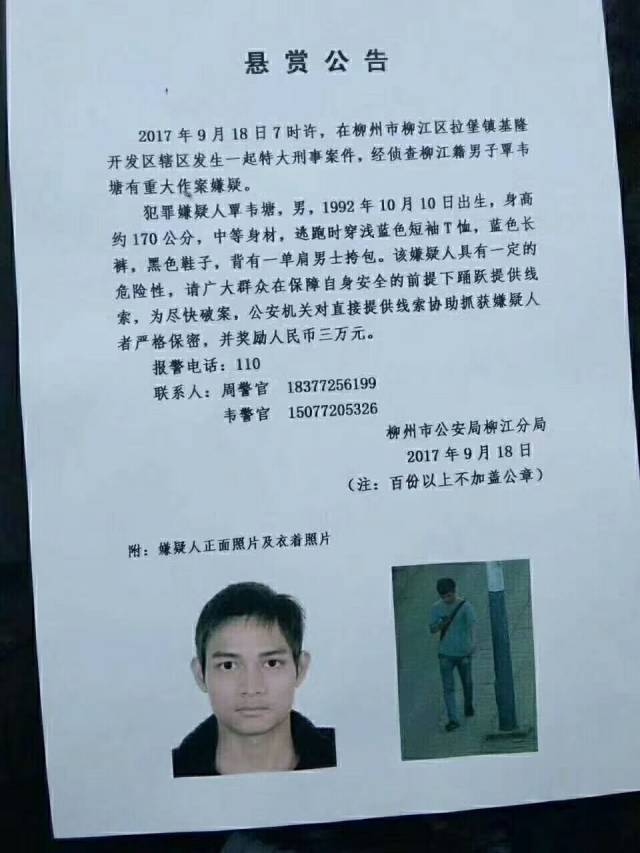 悬赏公告
2017年9月18日7时许，在柳州市柳江区拉堡镇基隆
开发区辖区发生一起特大刑事案件，经侦查柳江籍男子覃韦
塘有重大作案嫌疑。
犯罪嫌疑人覃韦塘，男，1992年10月10日出生，身高
约170公分，中等身材，逃跑时穿浅蓝色短袖T恤，蓝色长
裤，黑色鞋子，背有一单肩男士挎包。该嫌疑人具有一定的
危险性，请广大群众在保障自身安全的前提下踊跃提供线
索，为尽快破案，公安机关对直接提供线索协助抓获嫌疑人
者严格保密，并奖励人民币三万元。
报警电话：110
联系人：周警官 18377256199
韦警官 15077205326
柳州市公安局柳江分局
2017年9月18日
（注：百份以上不加盖公章）
附：嫌疑人正面照片及衣着照片